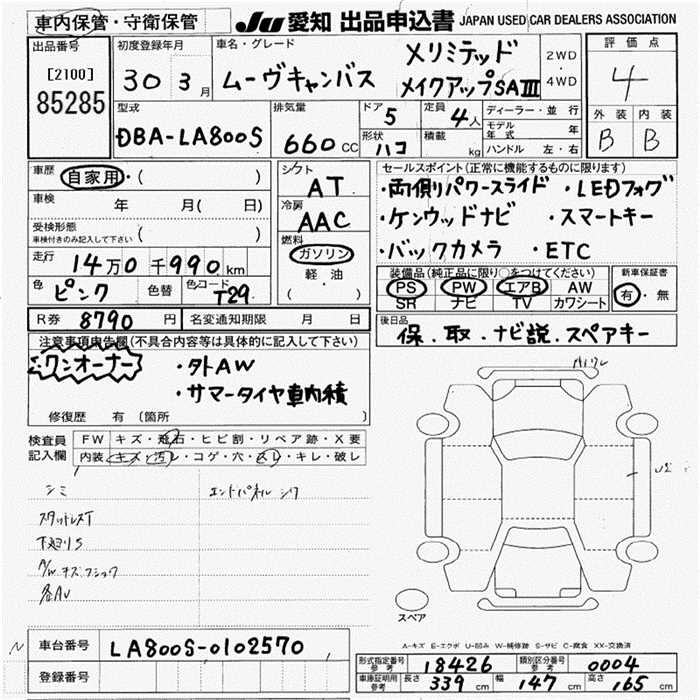 車内保管・守衛保管
JU 愛知 出品申込書 JAPAN USED CAR DEALERS ASSOCIATION
出品番号
[2100]
85285
初度登録年月
30 3月
車名・グレード
メリミテッド
ムーヴキャンバス
メイクアップSAⅢ
2WD
4WD
評価点
4
外装 内装
B B
型式
DBA-LA800S
排気量
660 CC
ドア 5
形状 ハコ
定員 4人
積載 kg
ディーラー・並行
モデル年式 年
ハンドル 左・右
車歴 自家用・( )
車検 年 月( 日)
受検形態
車検付きのみ記入して下さい ( )
走行 14万0千990km
色 ピンク 色替 色コード T29
シフト AT
冷房 AAC
燃料
ガソリン
軽・油
( )
セールスポイント(正常に機能するものに限ります)
・両側パワースライド ・LEDフォグ
・ケンウッドナビ ・スマートキー
・バックカメラ ・ETC
装備品(純正品に限り○をつけてください)
PS PW エアB AW
SR ナビ TV カワシート
新車保証書
有・無
R券 8790円 名変通知期限 月 日
後日品
保.取.ナビ説.スペアキー
注意事項申告欄(不具合内容等は具体的に記入して下さい)
ワンオーナー
・外AW
・サマータイヤ車内積
修復歴 有(箇所 )
検査員
記入欄
FW キズ・飛石・ヒビ割・リペア跡・X要
内装 キズ・汚レ・コゲ・穴・スレ・キレ・破レ
シミ
エンドパネル シワ
スタットレスT
下廻りS
A/W キズ
各AU
スペア
A-キズ E-エクボ U-凹み W-補修跡 S-サビ C-腐食 XX-交換済
N
車台番号 LA800S-0102570
登録番号
形式指定番号 参考 18426
類別区分番号 参考 0004
車庫証明用 参考 長さ 339cm 幅 147cm 高さ 165cm